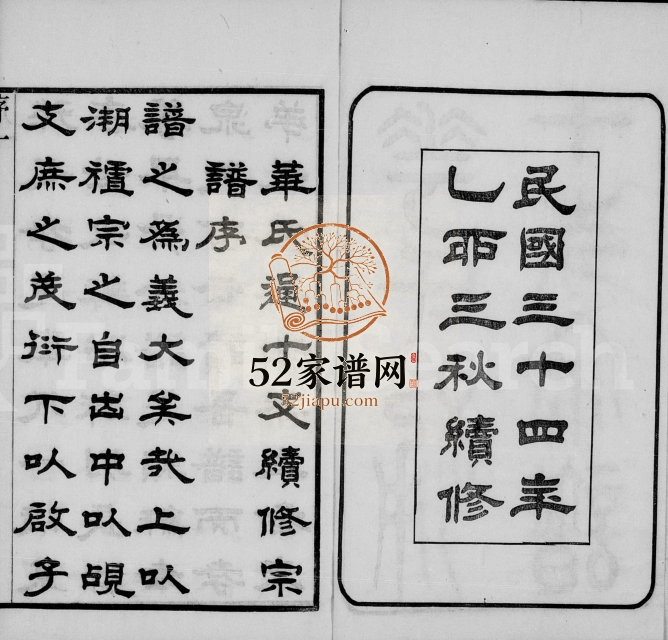 民國三十四年
乙酉三秋續修
華氏通 續修宗
譜序
譜之爲義大矣哉上以
溯禮宗之自出中以覘
支庶之茂衍下以啟子
序一
52家谱网
52jiapu.com